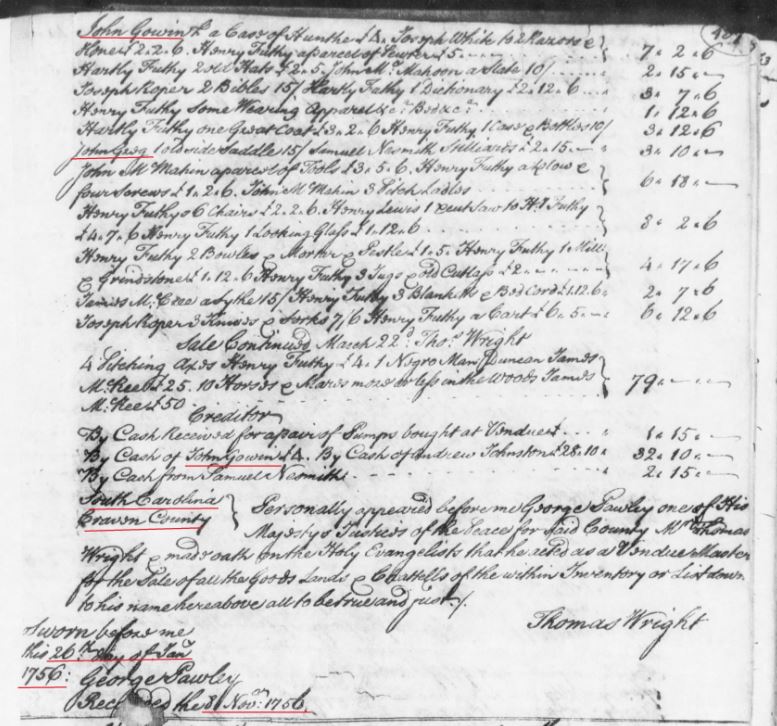 John Gowin a Case of £4. Joseph White to 2 Razors &
Hone £2.2.6. Henry Futhy a parcel of Pewter £5 7 2 6
Hartly Futhy 2 old Hats £2.5. John Mc Mahoon a Slate 10/ 2 15
Joseph Roper 2 Bibles 15/ Hartly Futhy 1 Dictionary £2.12.6 3 7 6
Henry Futhy Some Wearing Apparel &c. Bed &c. 1 12 6
Hartly Futhy one Great Coat £3.2.6 Henry Futhy 1 Case & Bottles 10/ 3 12 6
John Greg 1 old side Saddle 15/ Samuel Nesmith Stilliards £2.15 3 10
John Mc Mahin a parcel of Tools £3.5.6. Henry Futhy a Plow &
four Screws £1.2.6. John Mc Mahin 3 Pitch Ladles 6 18
Henry Futhy 6 Chairs £2.2.6. Henry Lewis 1 Saw to Hy Futhy
£4.7.6 Henry Futhy 1 Looking Glass £1.12.6 8 2 6
Henry Futhy 2 Bowles & Mortar & Pestle £1.5. Henry Futhy 1 Mill
& Grindstone £1.12.6 Henry Futhy 3 Jugs & old Cutlass £2 4 17 6
James Mc Kee a Syke 15/ Henry Futhy 3 Blankets & Bed Cord £1.12.6 2 7 6
Joseph Roper 3 Knives & forks 7/6 Henry Futhy a Cart £6.5 6 12 6
Sale Continued March 22d. Thos. Wright
4 Axes Henry Futhy £4. 1 Negro Man Duncan James
Mc Kee £25. 10 Horses & Mares more or less in the Woods James 79
Mc Kee £50
Creditor
By Cash Received for a pair of Pumps bought at Vendue 1 15
By Cash of John Gowin £4. By Cash of Andrew Johnston £28.10 32 10
By Cash from Samuel Nesmith 2 15
South Carolina
Craven County
Personally appeared before me George Pawley one of His
Majestys Justices of the Peace for said County Mr. Thomas
Wright & made oath on the Holy Evangelists that he acted as a Vendue Master
for the Sale of all the Goods Lands & Chattells of the within Inventory or List down
to his name hereabove all to be true and just./.
Thomas Wright
Sworn before me
this 26th day of Jany
1756: George Pawley
Recorded the 8 Novr. 1756.